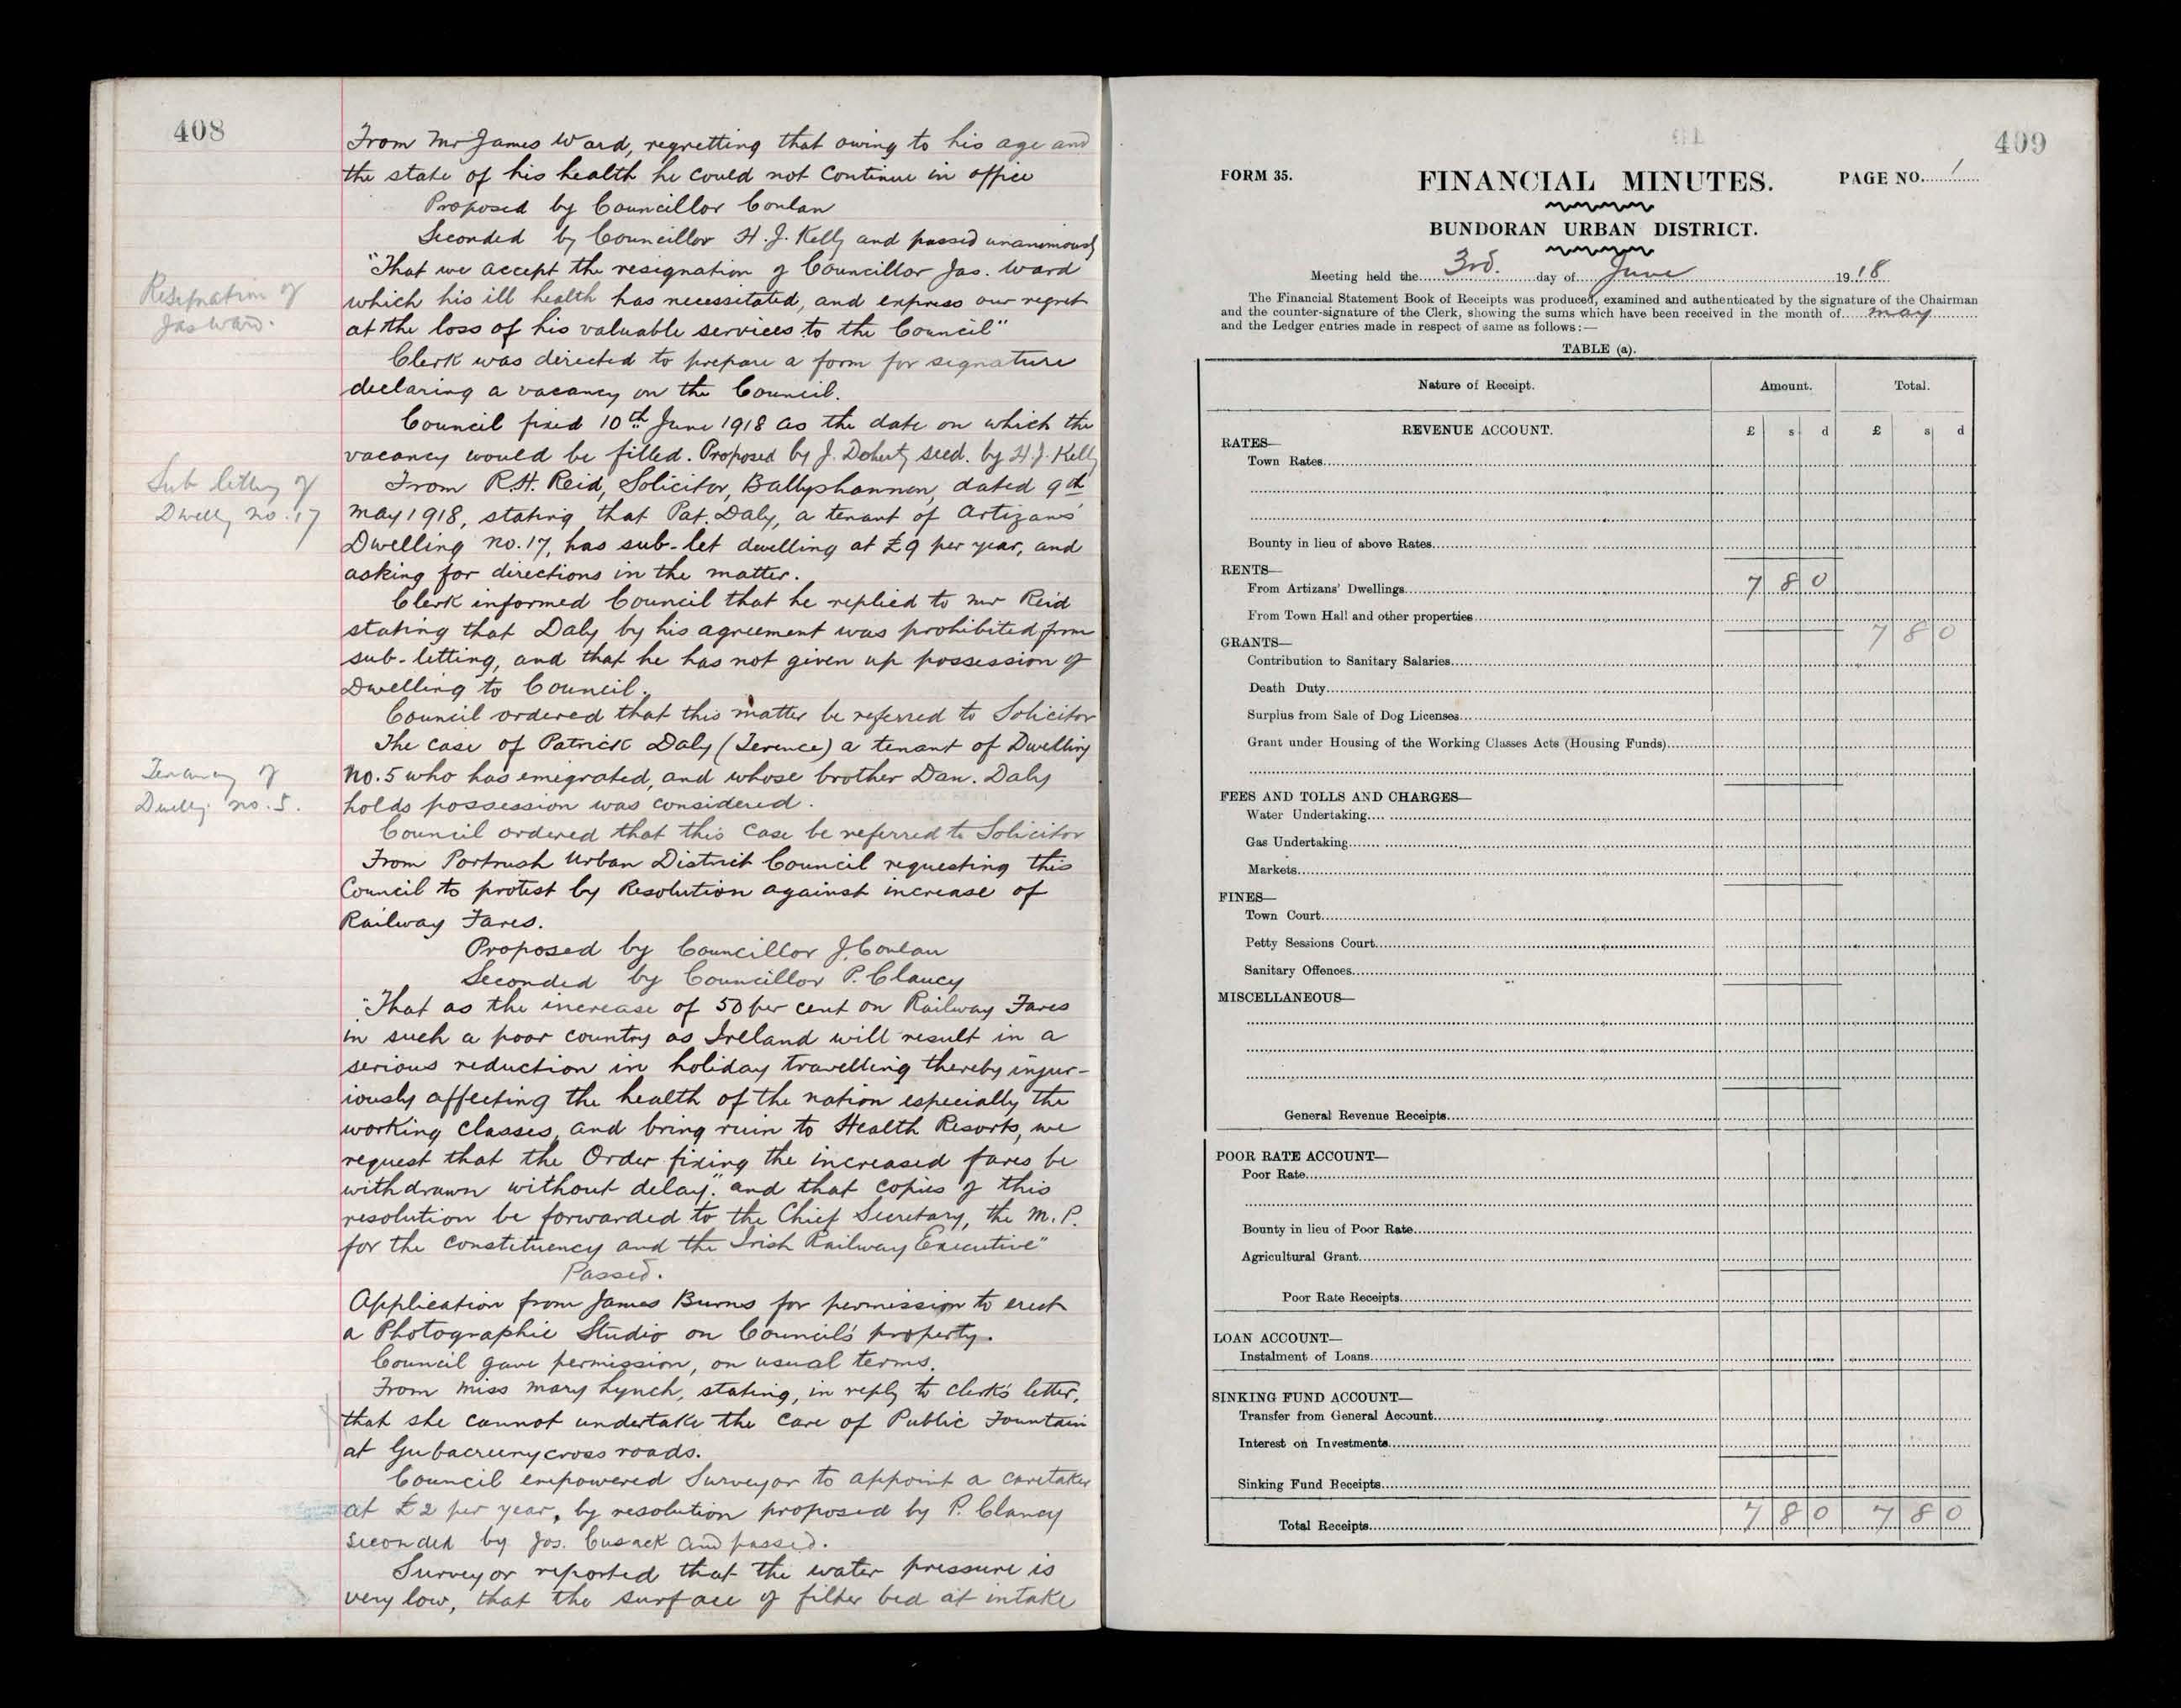 408
From Mr James Ward, regretting that owing to his age and
the state of his health he could not continue in office
Proposed by Councillor Conlan
Seconded by Councillor H. J. Kelly and passed unanimously
"That we accept the resignation of Councillor Jas. Ward
Resignation of
Jas Ward.
which his ill health has necessitated, and express our regret
at the loss of his valuable services to the Council"
Clerk was directed to prepare a form for signature
declaring a vacancy on the Council.
Council fixed 10th June 1918 as the date on which the
vacancy would be filled. Proposed by J. Doherty secd. by H. J. Kelly
Sub letting of
Dwellg no. 17
From R.H. Reid, Solicitor, Ballyshannon, dated 9th
May 1918, stating that Pat. Daly, a tenant of Artizans'
Dwelling No. 17, has sub-let dwelling at £9 per year, and
asking for directions in the matter.
Clerk informed Council that he replied to Mr Reid
stating that Daly by his agreement was prohibited from
sub-letting, and that he has not given up possession of
Dwelling to Council.
Council ordered that this matter be referred to Solicitor
The case of Patrick Daly (Terence) a tenant of Dwelling
Tenancy of
Dwellg. no. 5.
No. 5 who has emigrated, and whose brother Dan. Daly
holds possession was considered.
Council ordered that this case be referred to Solicitor
From Portrush Urban District Council requesting this
Council to protest by Resolution against increase of
Railway Fares.
Proposed by Councillor J. Conlan
Seconded by Councillor P. Clancy
"That as the increase of 50 per cent on Railway Fares
in such a poor country as Ireland will result in a
serious reduction in holiday travelling thereby injur-
iously affecting the health of the nation especially the
working classes, and bring ruin to Health Resorts, we
request that the Order fixing the increased fares be
withdrawn without delay." and that copies of this
resolution be forwarded to the Chief Secretary, the M.P.
for the constituency and the Irish Railway Executive"
Passed.
Application from James Burns for permission to erect
a Photographic Studio on Council's property.
Council gave permission, on usual terms.
From Miss Mary Lynch, stating, in reply to Clerk's letter,
that she cannot undertake the care of Public Fountain
at Gubacreeny cross roads.
Council empowered Surveyor to appoint a caretaker
at £2 per year, by resolution proposed by P. Clancy
seconded by Jos. Cusack and passed.
Surveyor reported that the water pressure is
very low, that the surface of filter bed at intake
409
FORM 35.
FINANCIAL MINUTES.
PAGE NO. 1
BUNDORAN URBAN DISTRICT.
Meeting held the 3rd. day of June 1918
The Financial Statement Book of Receipts was produced, examined and authenticated by the signature of the Chairman
and the counter-signature of the Clerk, showing the sums which have been received in the month of May
and the Ledger entries made in respect of same as follows:—
TABLE (a).
Nature of Receipt. Amount. Total.
REVENUE ACCOUNT. £ s d £ s d
RATES—
Town Rates
Bounty in lieu of above Rates
RENTS—
From Artizans' Dwellings 7 8 0
From Town Hall and other properties
7 8 0
GRANTS—
Contribution to Sanitary Salaries
Death Duty
Surplus from Sale of Dog Licenses
Grant under Housing of the Working Classes Acts (Housing Funds)
FEES AND TOLLS AND CHARGES—
Water Undertaking
Gas Undertaking
Markets
FINES—
Town Court
Petty Sessions Court
Sanitary Offences
MISCELLANEOUS—
General Revenue Receipts
POOR RATE ACCOUNT—
Poor Rate
Bounty in lieu of Poor Rate
Agricultural Grant
Poor Rate Receipts
LOAN ACCOUNT—
Instalment of Loans
SINKING FUND ACCOUNT—
Transfer from General Account
Interest on Investments
Sinking Fund Receipts
Total Receipts 7 8 0 7 8 0